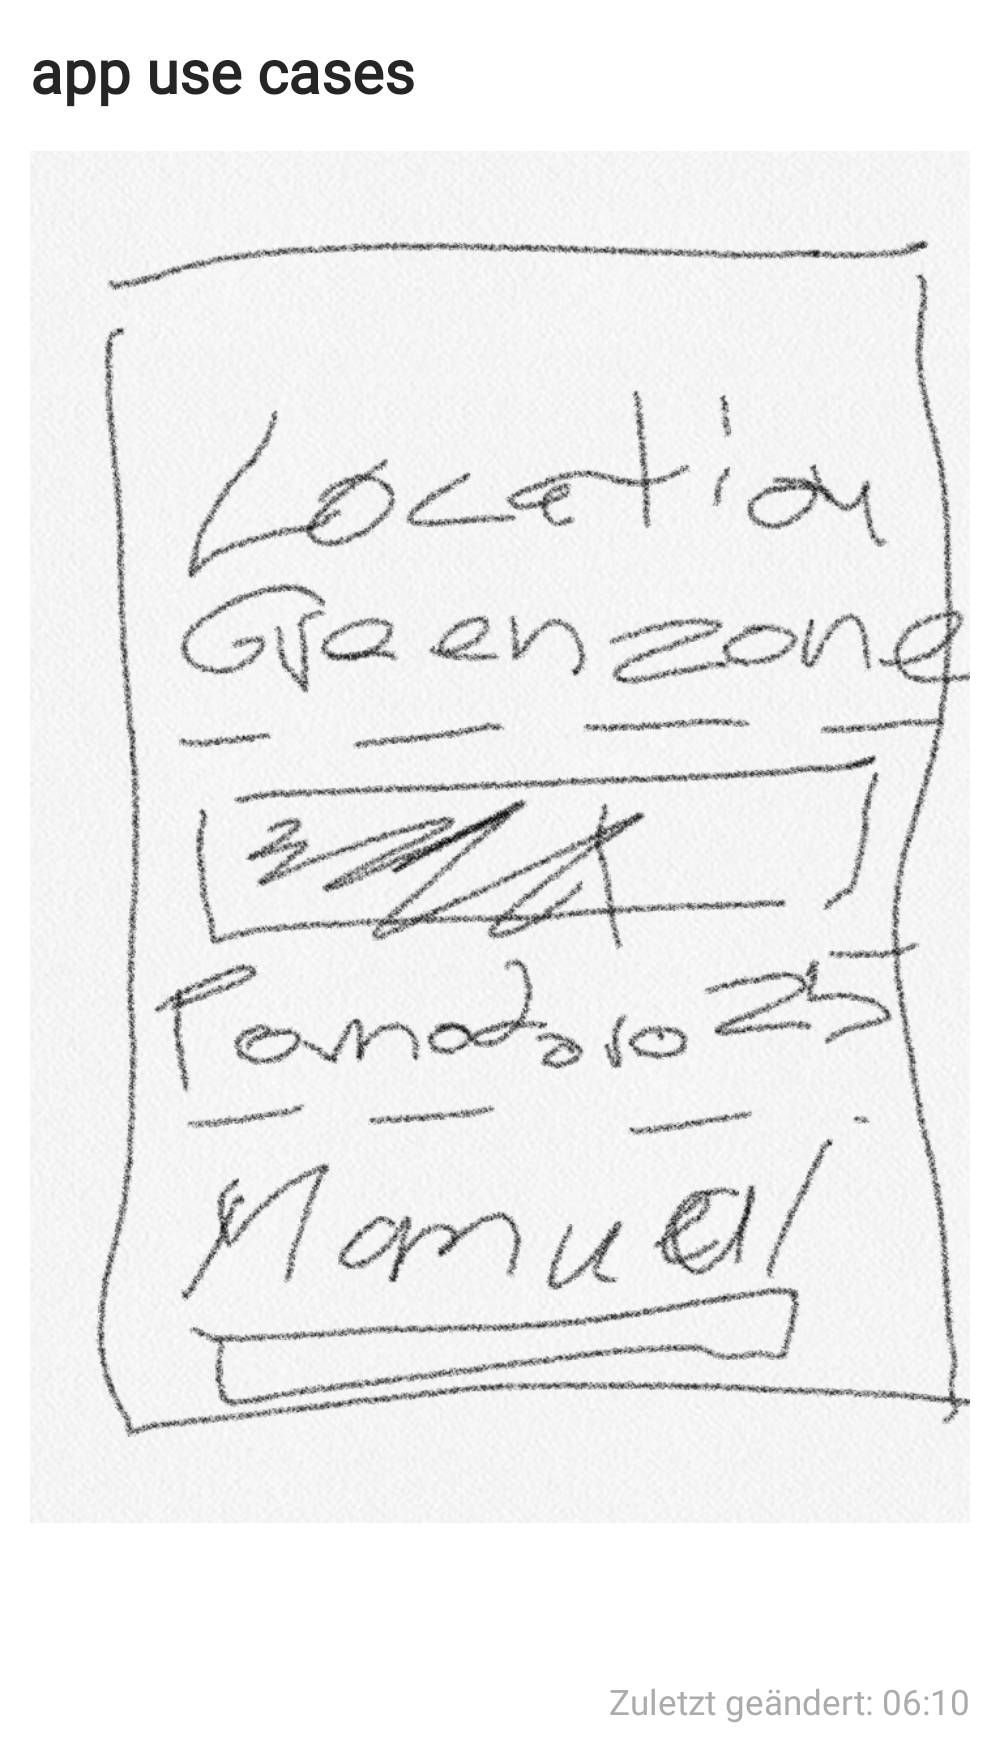 app use cases
Location
Greenzone
Pomodoro 25
Manuel
Zuletzt geändert: 06:10